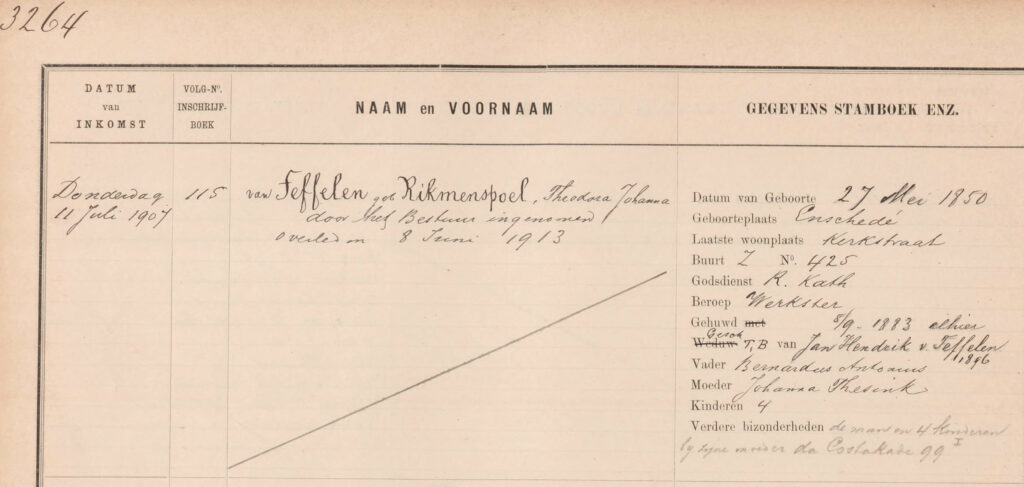 3264
DATUM
van
INKOMST
VOLG-Nº.
INSCHRIJF-
BOEK
NAAM en VOORNAAM
GEGEVENS STAMBOEK ENZ.
Donderdag
11 Juli 1907
115
van Feffelen geb Rikmenspoel, Theodora Johanna
door het Bestuur ingenomen
overleden 8 Juni 1913
Datum van Geboorte 27 Mei 1850
Geboorteplaats Enschedé
Laatste woonplaats Kerkstraat
Buurt Z Nº. 425
Godsdienst R. Kath
Beroep Werkster
Gehuwd met 5/9 - 1883 alhier
Gesch
Weduw T, B van Jan Hendrik v. Feffelen
1896
Vader Bernardus Antonius
Moeder Johanna Thesink
Kinderen 4
Verdere bizonderheden de man en 4 kinderen
by zijne moeder da Costakade 99 I